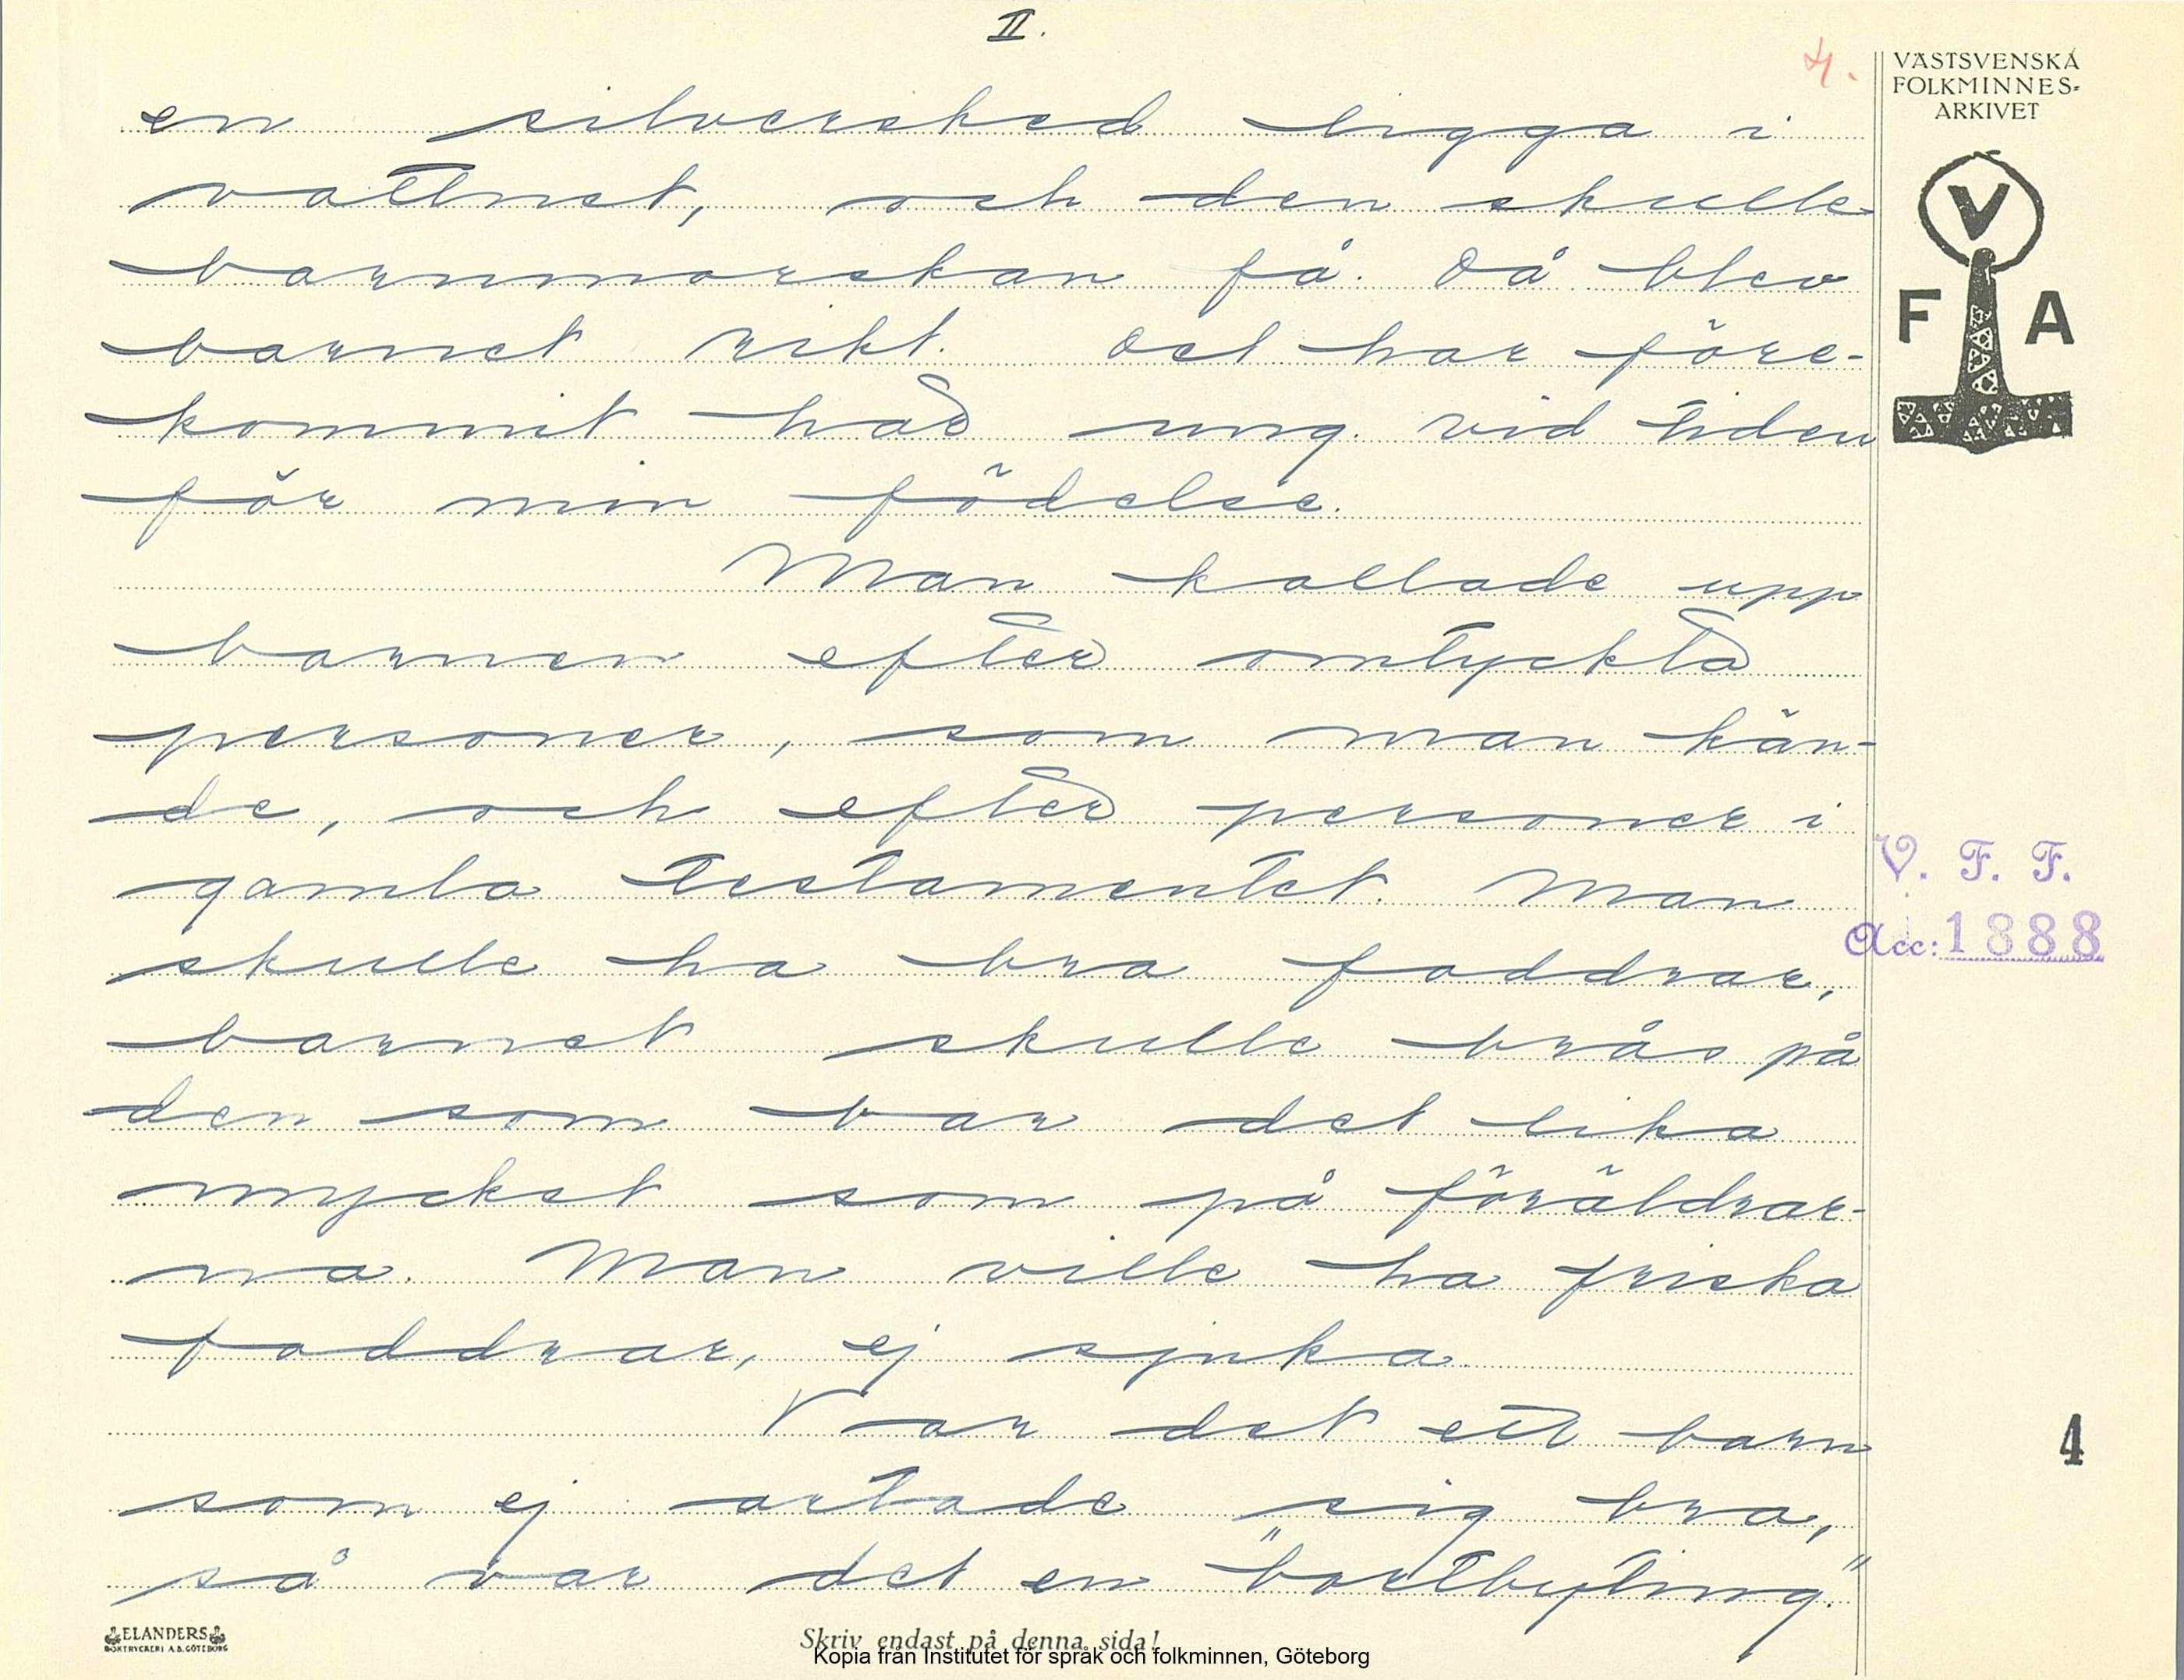 II.
4.
VÄSTSVENSKA
FOLKMINNES-
ARKIVET
V
F A
en silversked ligga i
vattnet, och den skulle
barnmorskan få. Då blev
barnet rikt. Det har före-
kommit här ung. vid tiden
för min födelse.
Man kallade upp
barnen efter omtyckta
personer, som man kän-
de, och efter personer i
gamla testamentet. Man
skulle ha bra faddrar,
barnet skulle brås på
den som bar det lika
mycket som på föräldrar-
na. Man ville ha friska
faddrar, ej sjuka.
Var det ett barn
som ej artade sig bra,
så var det en "bortbyting."
V. F. F.
Acc: 1888
4
ELANDERS
BOKTRYCKERI A.B. GÖTEBORG
Skriv endast på denna sida!
Kopia från Institutet för språk och folkminnen, Göteborg